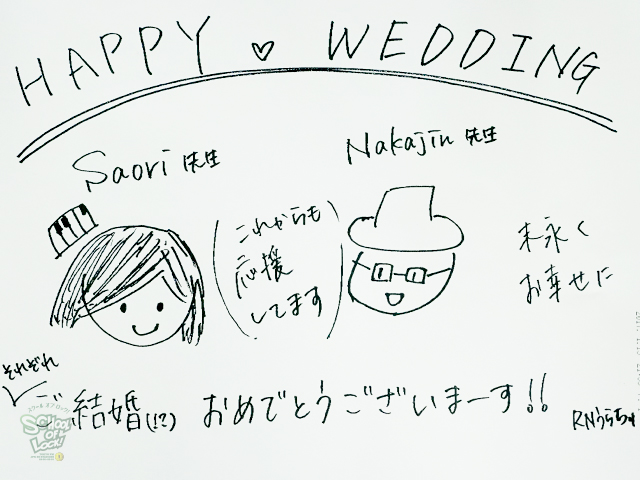 HAPPY ♡ WEDDING
Saori 先生
Nakajin 先生
(これからも
応援
してます)
末永く
お幸せに
それぞれ
ご結婚(!?) おめでとうございまーす!!
スクールオブロック!
SCHOOL
OF
LOCK!